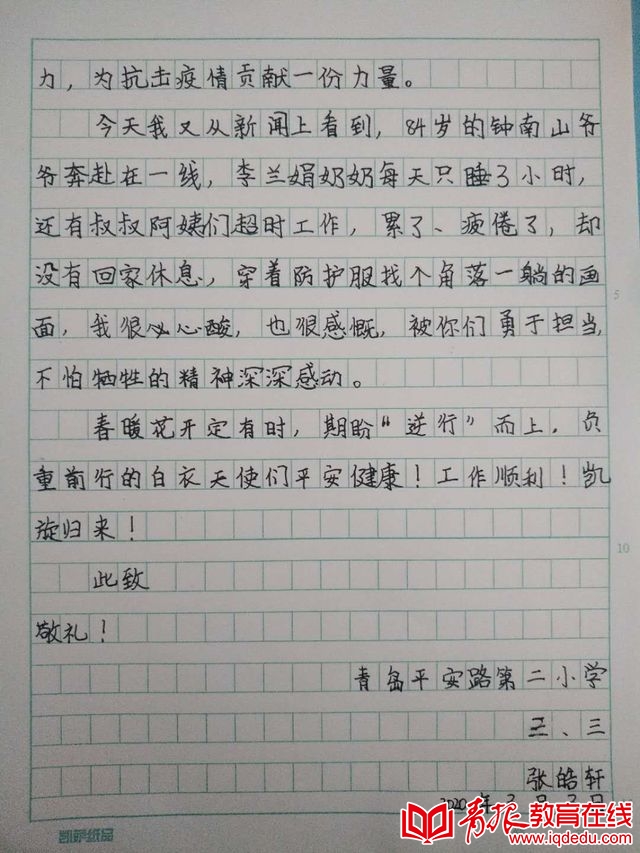 力，为抗击疫情贡献一份力量。
今天我又从新闻上看到，84岁的钟南山爷
爷奔赴在一线，李兰娟奶奶每天只睡3小时，
还有叔叔阿姨们超时工作，累了、疲倦了，却
没有回家休息，穿着防护服找个角落一躺的画
面，我很心心酸，也很感慨，被你们勇于担当，
不怕牺牲的精神深深感动。
春暖花开定有时，期盼“逆行”而上，负
重前行的白衣天使们平安健康！工作顺利！凯
旋归来！
此致
敬礼！
青岛平安路第二小学
三、三
张皓轩
2020年2月
5
10
凯萨纸品
青报教育在线
www.iqdedu.com